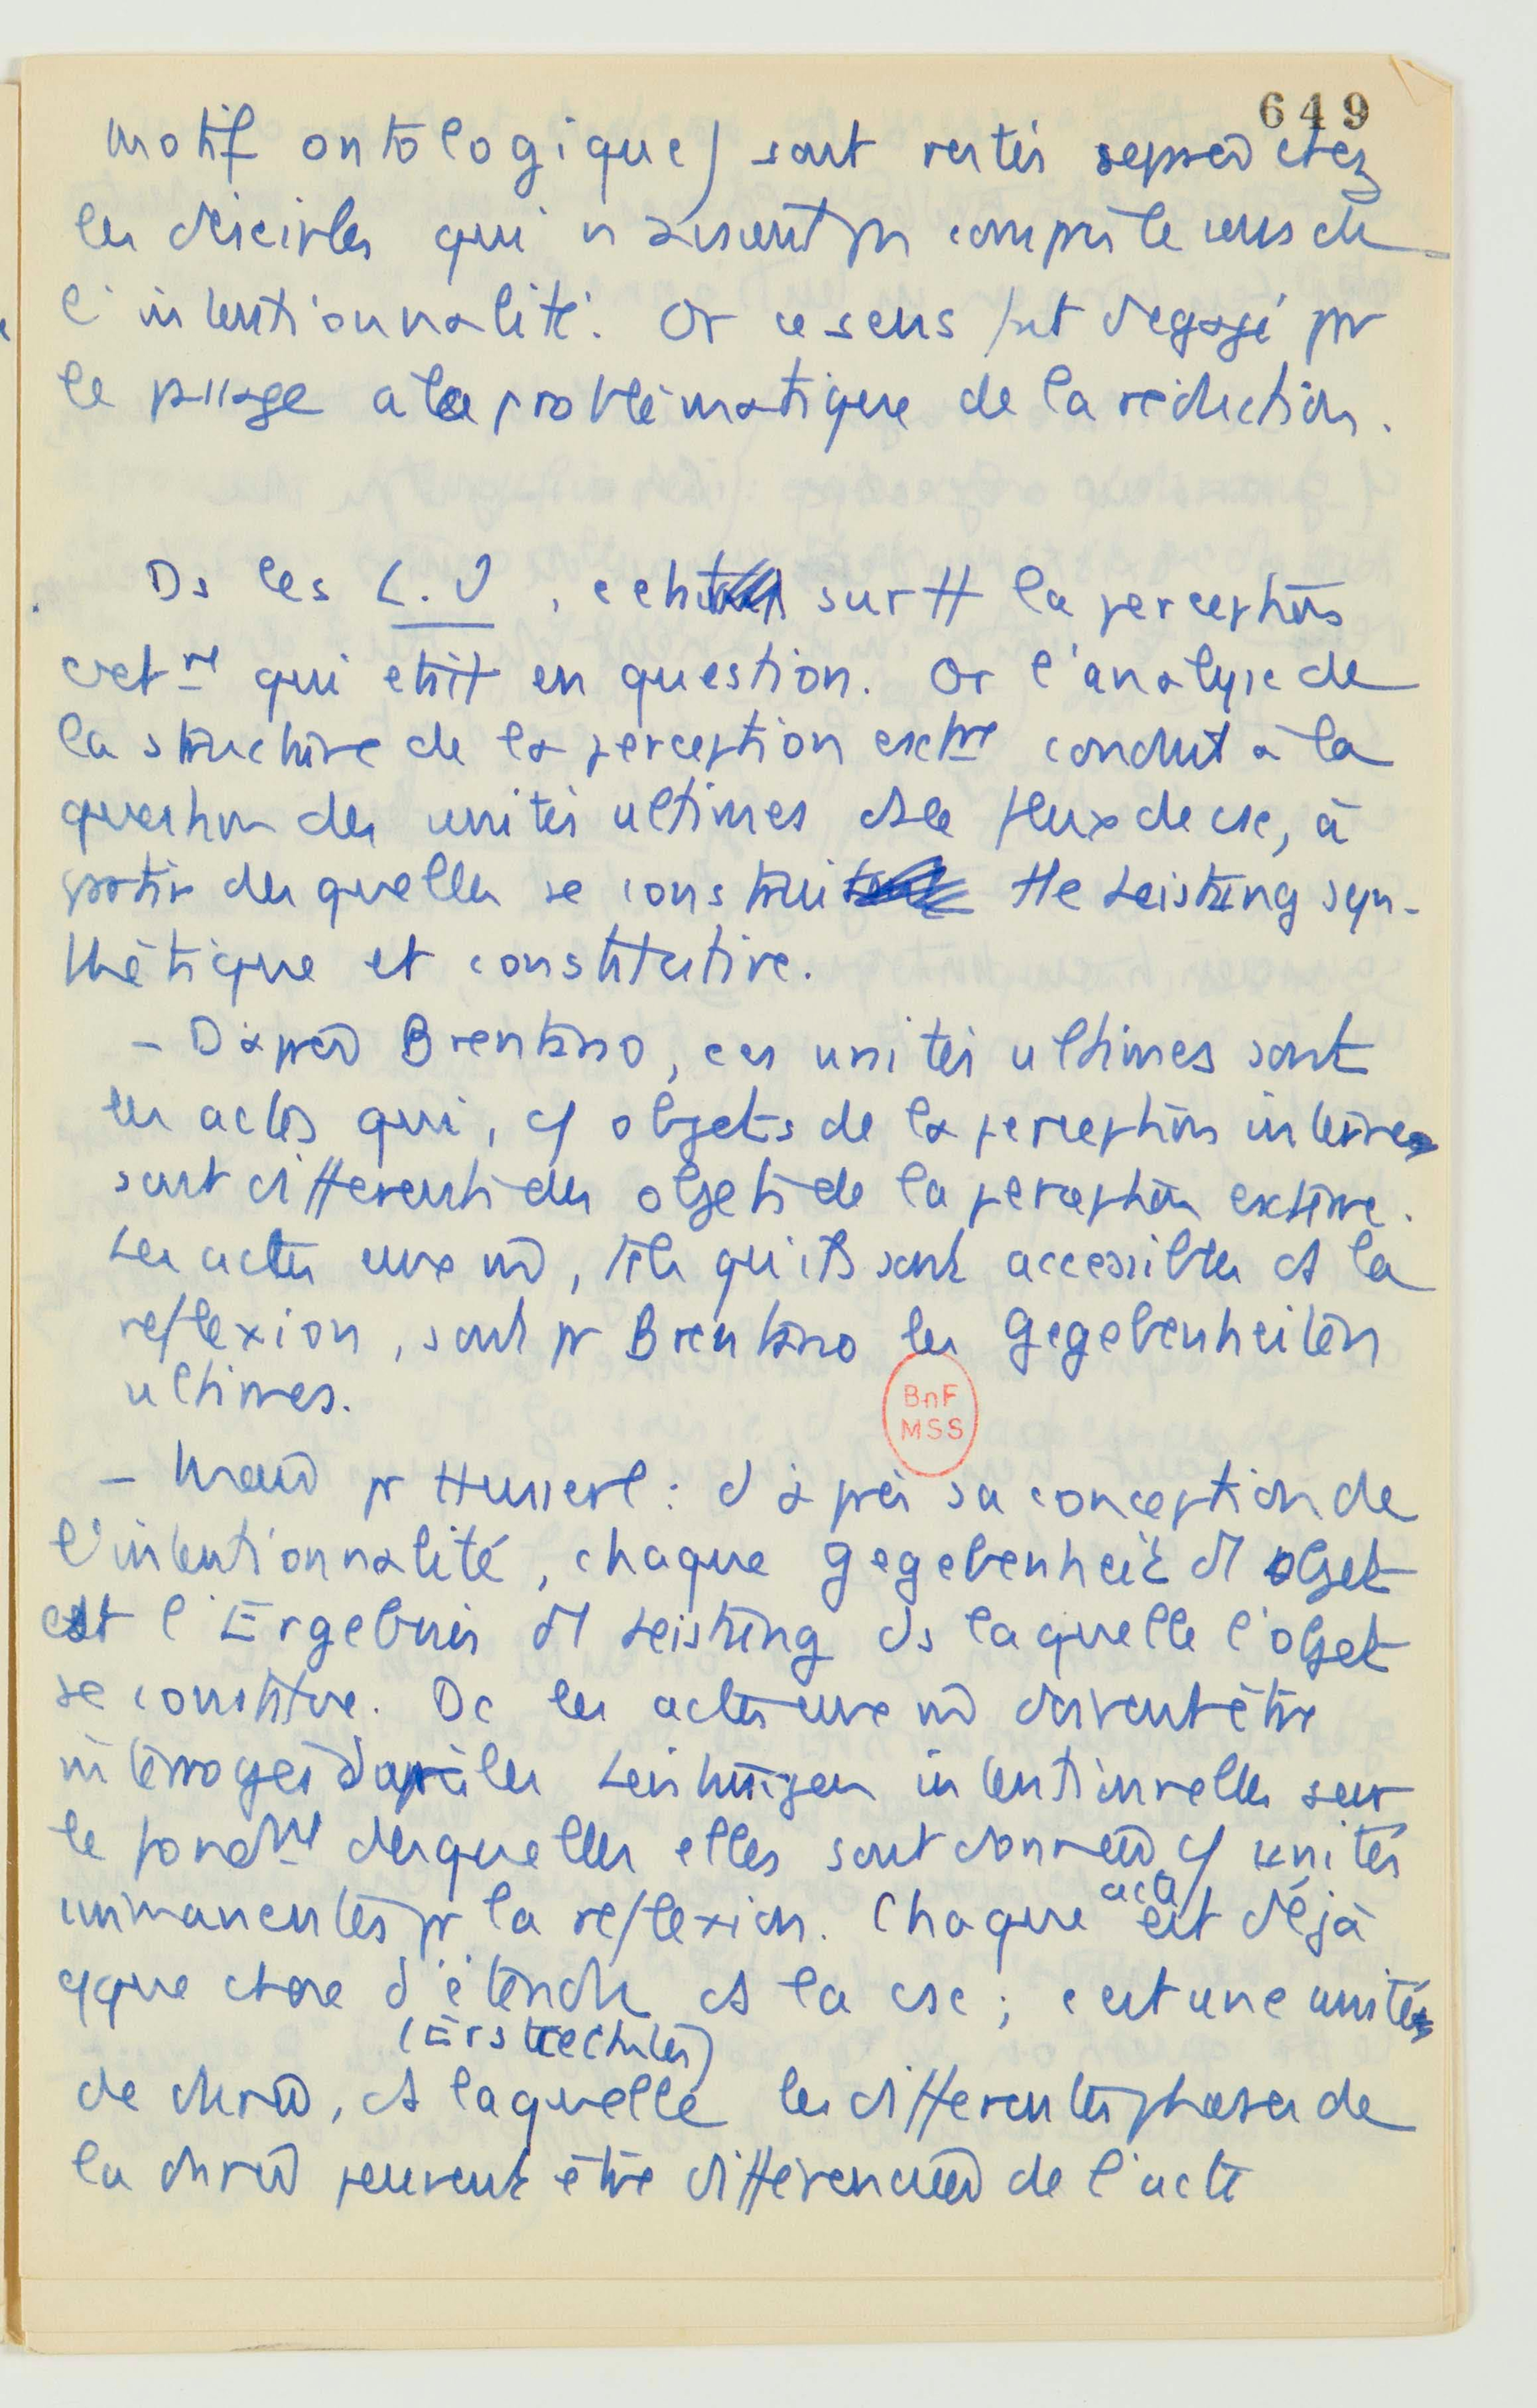 649
motif ontologique) sont restés séparés chez
les disciples qui n'avaient pas compris le sens de
l'intentionnalité. Or ce sens fut dégagé par
le passage à la problématique de la réduction.
Ds les L.U, c'eht sur tt la perception
extre qui etait en question. Or l'analyse de
la structure de la perception extre conduit à la
question des unités ultimes ds le flux de csc, à
partir desquelles se construit tte Leistung syn-
thétique et constitutive.
- D'après Brentano, ces unités ultimes sont
les actes qui, cf objets de la perception interne
sont différents des objets de la perception externe.
Les actes eux mêmes, tels qu'ils sont accessibles ds la
reflexion, sont pr Brentano les Gegebenheiten
ultimes.
BnF
MSS
- Mais pr Husserl : d'après sa conception de
l'intentionnalité, chaque Gegebenheit d'1 objet
est l'Ergebnis d'1 Leistung ds laquelle l'objet
se constitue. Dc les actes eux mêmes doivent être
interrogés d'après les Leistungen intentionnelles sur
le fondmt desquelles elles sont données cf unités
immanentes pr la reflexion. Chaque acte est déjà
qque chose d'étendu ds la csc ; c'est une unité
(Erstrecktes)
de durée, ds laquelle les différentes phases de
la durée peuvent être différenciées de l'acte